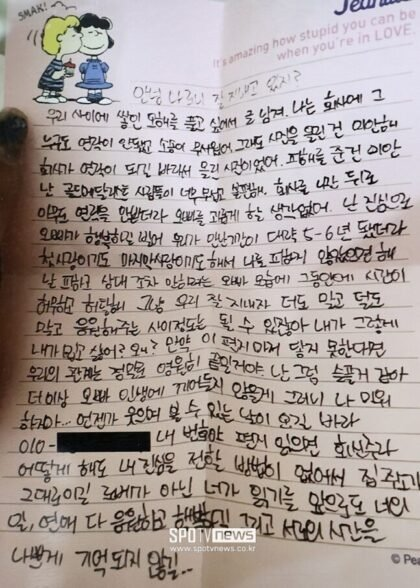 SMAK!
Peanuts
It's amazing how stupid you can be
when you're in LOVE.
안녕 나 잘 지내고 있지?
우리 사이에 쌓인 오해를 풀고 싶어서 글 남겨. 나는 회사에 그
누구도 연락이 안됐고 소송이 무서웠어. 그래도 사진을 올린 건 미안해
회사가 연락이 되길 바라서 올린 사진이었어. 피해를 준건 미안
난 골드메달리스트 사람들이 너무 무섭고 불편해. 회사를 나간 뒤로
아무도 연락을 안받더라 오빠를 괴롭게 할 생각없어. 난 진심으로
오빠가 행복하길 빌어 우리가 만난기간이 대략 5-6년 됐더라
첫사랑이기도 마지막사랑이기도해서 나를 피하지 않았으면 해
난 피하고 상대 조차 안하려는 오빠 모습에 그동안에 시간이
허무하고 허탈해 그냥 우리 잘 지내자 더도 말고 덜도
말고 응원해주는 사이정도는 될 수 있잖아 내가 그렇게
내가 밉고 싫어? 왜? 만약 이 편지마저 닿지 못한다면
우리의 관계는 정말로 영원히 끝일거야 난 그럼 슬플거 같아
더이상 오빠 인생에 끼어들지 않을게 그러니 나 미워
하지마... 언젠가 웃으며 볼 수 있는 날이 오길 바라
010- 내 번호야 편지 읽으면 회신주라
어떻게 해도 내 진심을 전할 방법이 없어서 집 주소가
그대로이길 로베가 아닌 너가 읽기를 앞으로도 너의
일, 연애 다 응원하고 행복하길 그리고 서로의 시간을
나쁘게 기억되지 않길...
SPOTVnews
www.spotvnews.co.kr
© Pea